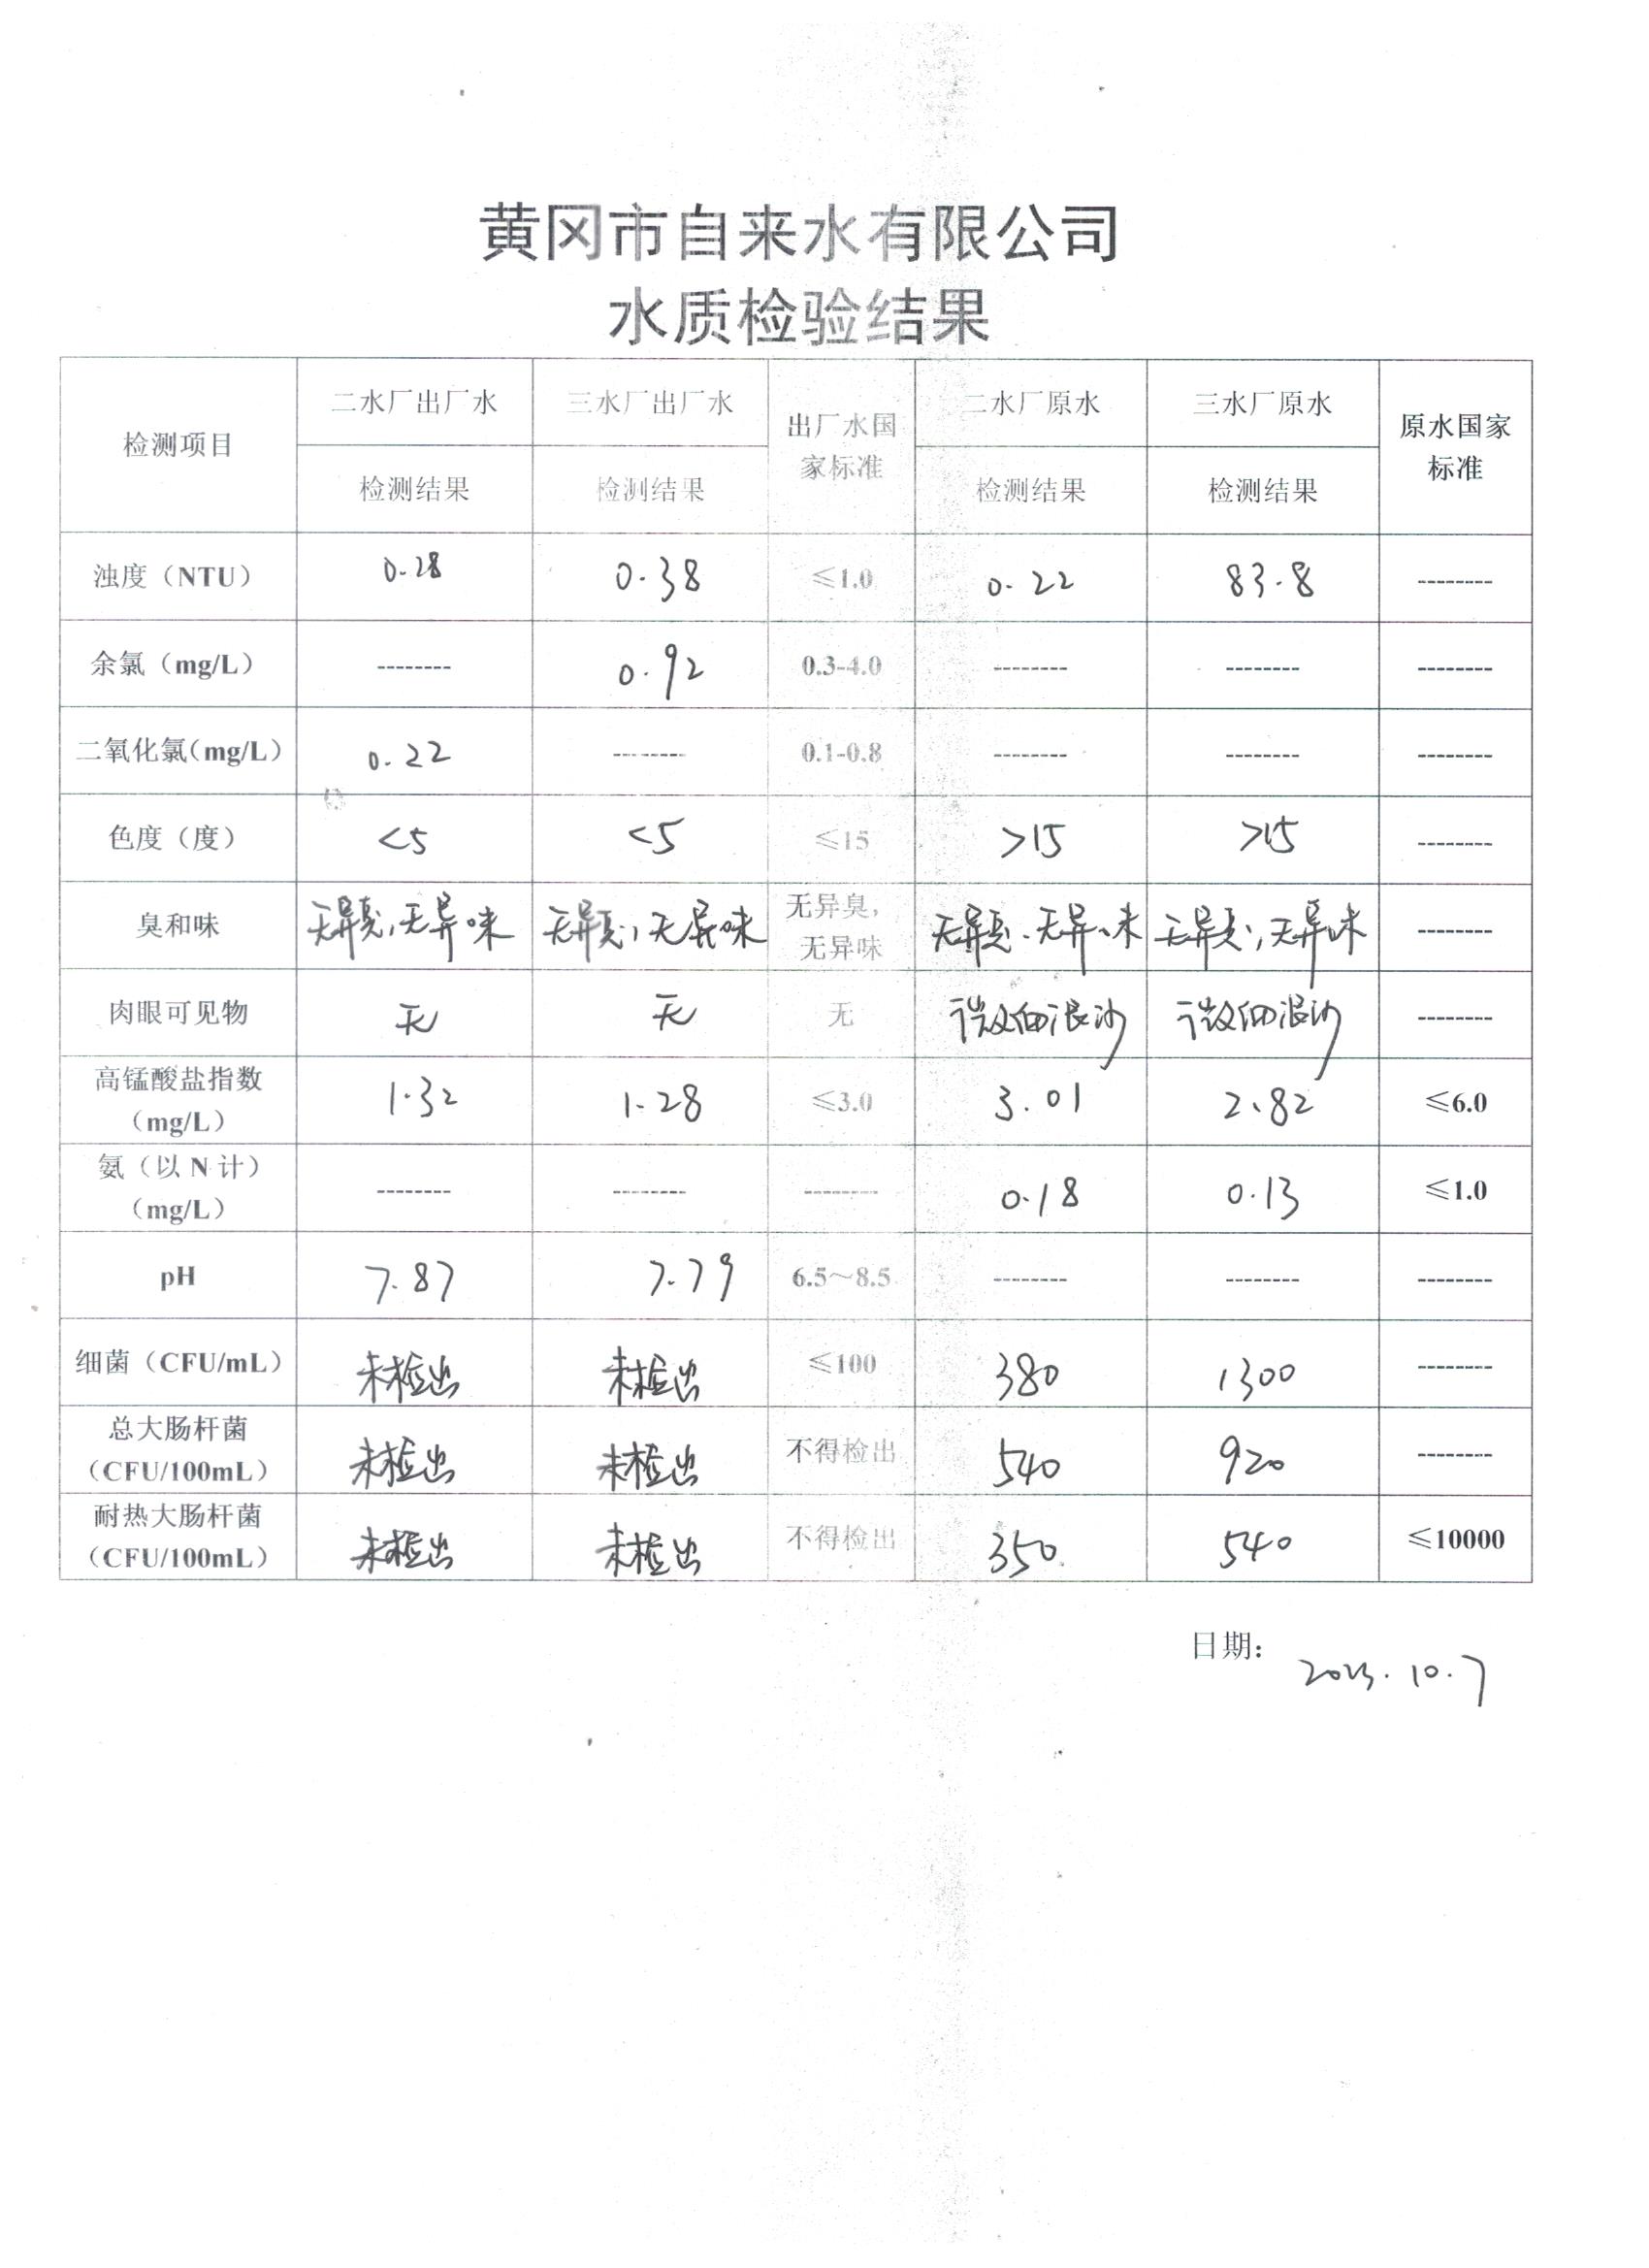 黄冈市自来水有限公司
水质检验结果
检测项目 二水厂出厂水 三水厂出厂水 出厂水国家标准 二水厂原水 三水厂原水 原水国家标准
检测结果 检测结果 检测结果 检测结果
浊度（NTU） 0.28 0.38 ≤1.0 0.22 83.8 --------
余氯（mg/L） -------- 0.92 0.3-4.0 -------- -------- --------
二氧化氯（mg/L） 0.22 -------- 0.1-0.8 -------- -------- --------
色度（度） <5 <5 ≤15 >15 >15 --------
臭和味 无异臭,无异味 无异臭,无异味 无异臭，无异味 无异臭.无异味 无异臭,无异味 --------
肉眼可见物 无 无 无 微细泥沙 微细泥沙 --------
高锰酸盐指数（mg/L） 1.32 1.28 ≤3.0 3.01 2.82 ≤6.0
氨（以 N 计）（mg/L） -------- -------- -------- 0.18 0.13 ≤1.0
pH 7.87 7.79 6.5～8.5 -------- -------- --------
细菌（CFU/mL） 未检出 未检出 ≤100 380 1300 --------
总大肠杆菌（CFU/100mL） 未检出 未检出 不得检出 540 920 --------
耐热大肠杆菌（CFU/100mL） 未检出 未检出 不得检出 350 540 ≤10000
日期: 2023.10.7